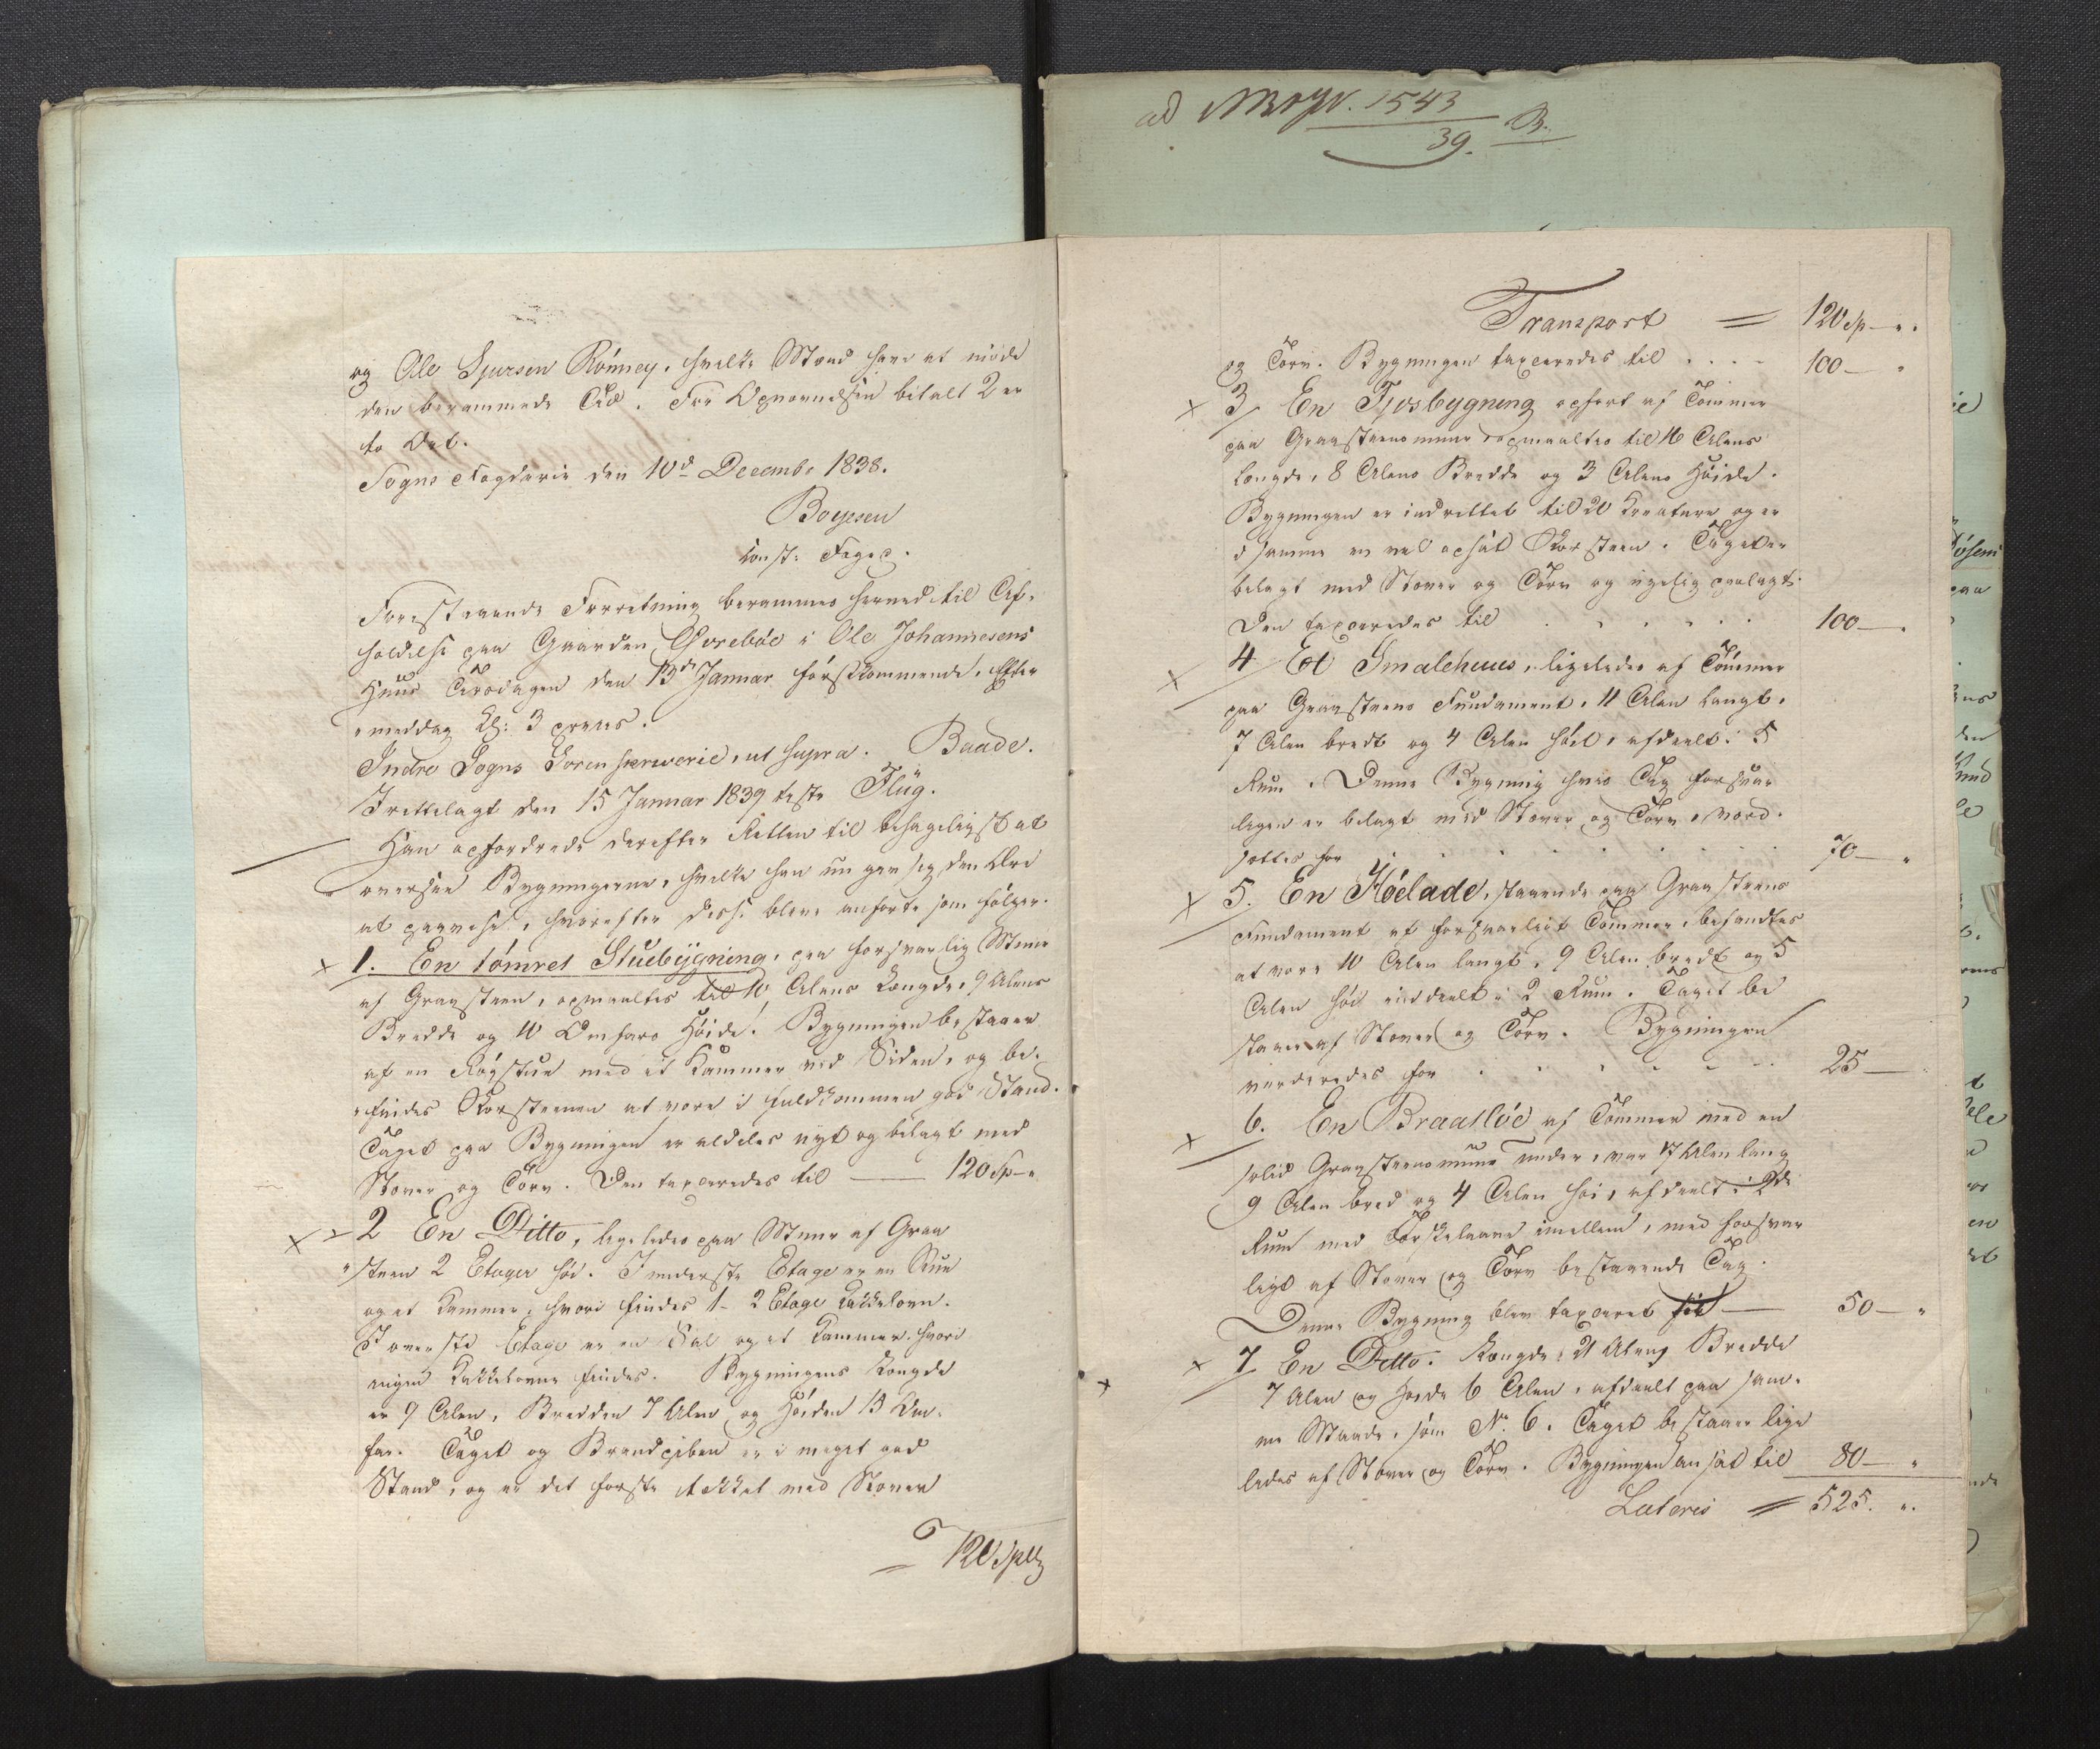 og Ole Sjursen Rönney, hvilke Mænd have at möde
den berammede Tid. For Opnævnelsen betalt 2 er
to Ort.
Sogns Fogderie den 10d Decembr 1838.
Boyesen
const: Foged.
Forestaaende Forretning berammes herved til Af-
holdelse paa Gaarden Övreböe i Ole Johannesens
Huus Tirsdagen den 15d Januar förstkommende, Efter
meddag Kl: 3 præcis.
Indre Sogns Sorenskriverie, ut supra. Baade.
Irettelagt den 15 Januar 1839 teste Flüg.
Han opfordrede derefter Retten til behageligst at
oversee Bygningerne, hvilke han nu gav sig den Ære
at paavise, hvorefter disse bleve anførte som følger.
1. En tömret Stuebygning, paa forsvarlig Muur
af Graasteen, opmaaltes til 10 Alens Længde, 9 Alens
Bredde og 10 Omfars Höide. Bygningen bestaaer
af en Rögstue med et Kammer ved Siden, og be-
findes Skorsteenen at være i fuldkommen god Stand.
Taget paa Bygningen er aldeles nyt og belagt med
Næver og Törv. Den taxeredes til — 120 Sp—"
2 En Ditto, ligeledes paa Muur af Graa
steen 2 Etager höi. I underste Etage er en Stue
og et Kammer, hvori findes 1- 2 Etage Kakkelovn.
I överste Etage er en Sal og et Kammer hvori
ingen Kakkelovne findes. Bygningens Længde
er 9 Alen, Bredden 7 Alen og Höiden 13 Om-
far. Taget og Brandpiben er i meget god
Stand, og er det første tækket med Næver
= 120 Spdlr
ad Msgr. 1543/39. B.
Transport = 120 Sp—".
og Törv. Bygningen taxceredes til .... 100— "
3/ En Fjosbygning opført af Tömmer
paa Graasteensmuur opmaaltes til 16 Alens
Længde, 8 Alens Bredde og 3 Alens Höide.
Bygningen er indrettet til 20 Kreature og er
i samme en vel opsat Skorsteen. Taget er
belagt med Næver og Törv og nyelig paalagt.
Den taxceredes til . . . . . . 100— "
4/ Et Smalehuus, ligeledes af Tömmer
paa Graasteens Fundament, 11 Alen langt,
7 Alen bredt og 4 Alen höit, afdeelt i 5
Rum. Denne Bygning hvis Tag forsvar
ligen er belagt med Næver og Törv, værd-
sattes for . . . . . . 70— "
5. En Höelade, staaende paa Graasteens
Fundament af forsvarligt Tömmer, befandtes
at være 10 Alen langt, 9 Alen bredt og 5
Alen höi inddeelt i 2 Rum. Taget be
staaer af Næver og Törv. Bygningen
vurderedes for . . . . . . 25—
6. En Braatlöe af Tömmer med en
solid Graasteensmuur under, var 17 Alen lang
9 Alen bred og 4 Alen höi, afdeelt i 2de
Rum med Tærskelaave imellem, med forsvar
ligt af Næver og Törv bestaaende Tag.
Denne Bygning blev taxceret til — 50— "
7 En Ditto. Længde 21 Alen, Bredde
7 Alen og Höide 6 Alen, afdeelt paa sam-
me Maade, som No 6. Taget bestaaer lige
ledes af Næver og Törv. Bygningen ansat til 80— "
Lateris = 525. ".